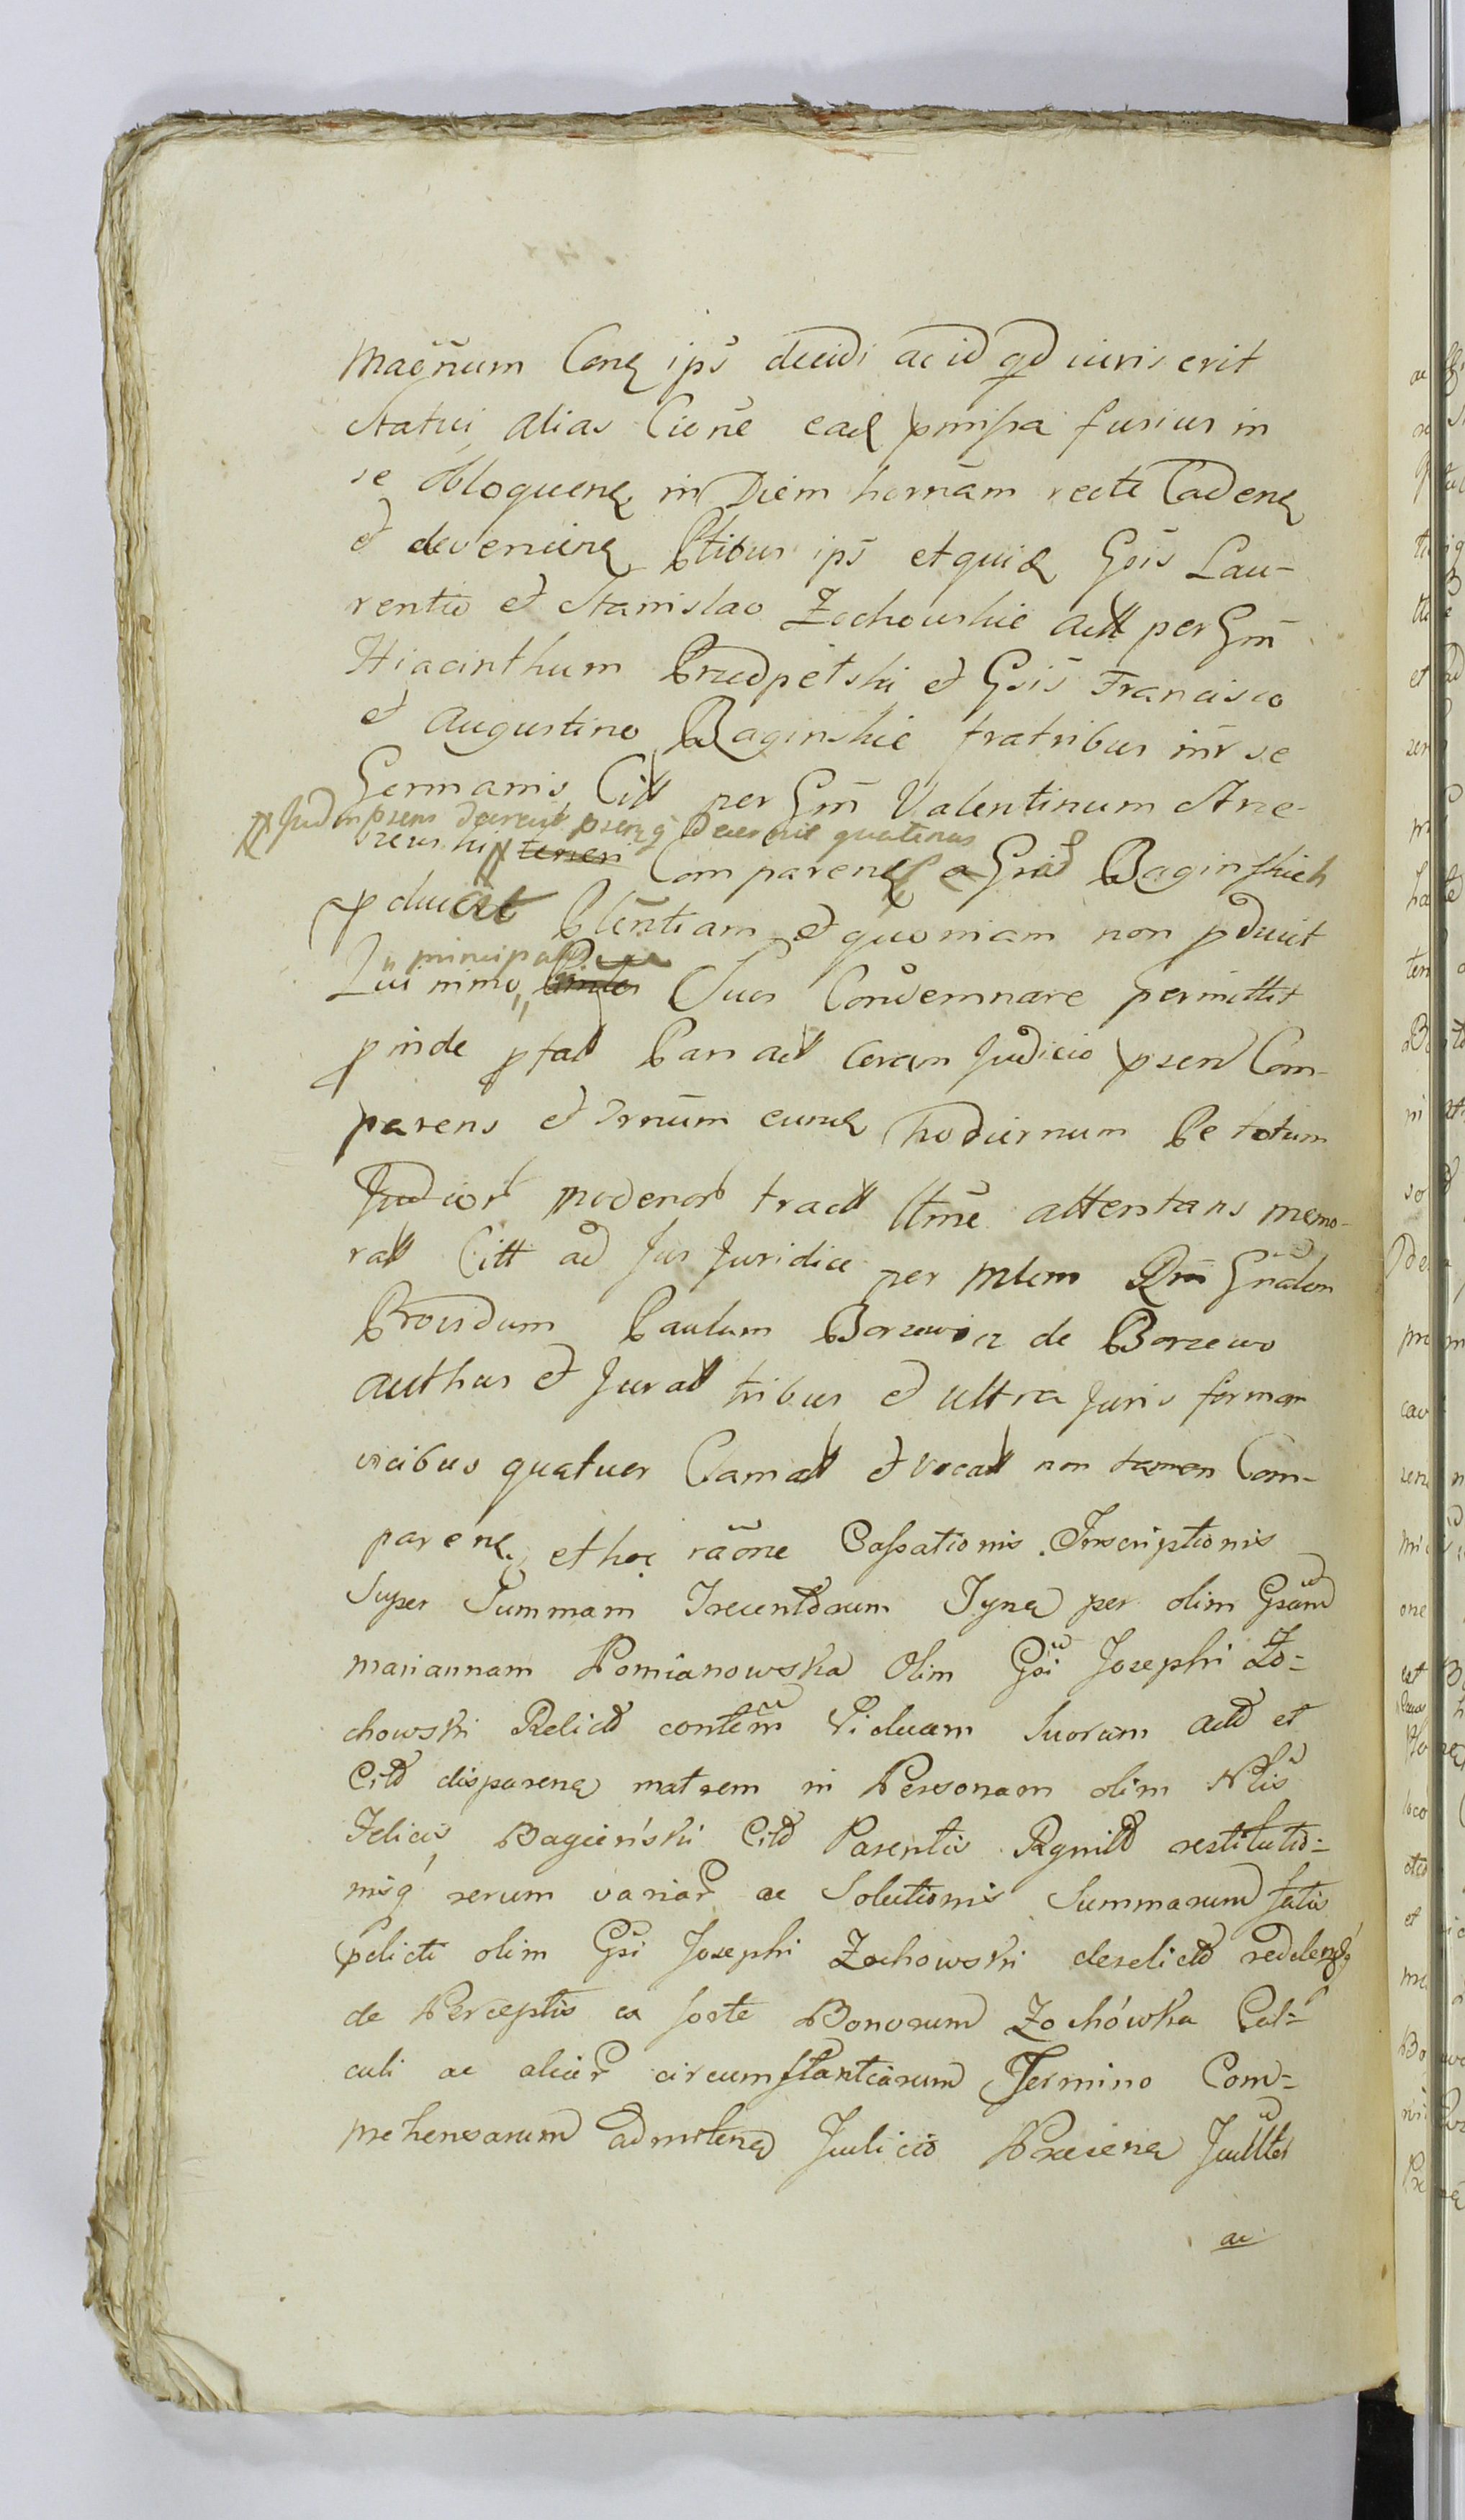 Magñum Conq ips decidi ac id qd iuris erit
Statui, alias Cione ead pmissa fusius in
se obloquenq in Diem hornam recte Cadenq
et devenienq Ptibus ips et quid Gsis Lau-
rentio et Stanislao Zochowskie actt per Gm
Hiacinthum Przedpełski et Gsis Francisco
et Augustino Baginskie fratribus intr se
Germanis Citt per Gm Valentinum Strze-
Judm psens decrevit quatinus
Comparenq a Gnd Baginskich
pducat Plentiam et quoniam non pduxit
principales
imo Suos Condemnare permittit
pinde ptat Pars act coram Judicio psen Com-
parens et Trnum eund hodiernum Pe totum
Judior moderor tract ltme attentans memo-
ratt Citt ad Jus Juridice per Mlem Rm Gnalem
Providum Paulum Borzewicz de Borzewo
authus et Juratt tribus et ultra Juris formam
vicibus quatuor Clamatt et vocatt non tamen Com-
parenq, et hoc raõne Cassationis Inscriptionis
Super Summam Trecentorum Tynq per olim Gsam
mariannam Pomianowska Olim Gsi Josephi Zo-
chowski Relict contem Viduam Suorum actt et
Citt disparenq matrem in Personam olim Nlis
Felicis Bagieński Citt Parentis Rgnitt restitutio-
nisq rerum variar ac Solutionis Summarum fatis
pelicti olim Gsi Josephi Zochowski derelictt reddendq
de Perceptis ex sorte Bonorum Zochówka Cal-
culi ac aliar circumstantiarum Termino Com-
prehensarum admittenq Judicio Praesenq
ac